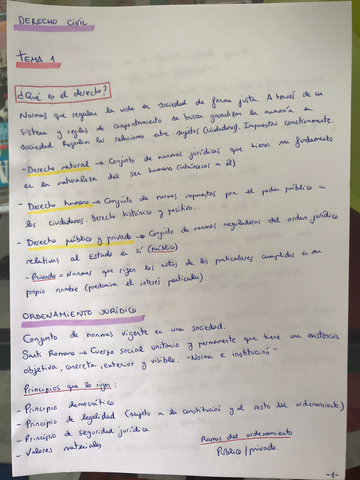 DERECHO CIVIL
TEMA 1
¿Qué es el derecho?
Normas que regulan la vida en sociedad de forma justa. A través de un
sistema y reglas de comportamiento se busca garantizar la armonía en
sociedad. Regulan las relaciones entre sujetos (ciudadanos). Impuestas coactivamente.
- Derecho natural → Conjunto de normas jurídicas que tienen su fundamento
en la naturaleza del ser humano (intrínsecas a él)
- Derecho humano → Conjunto de normas impuestas por el poder público a
los ciudadanos. Derecho histórico y positivo.
- Derecho público y privado → Conjunto de normas reguladoras del orden jurídico
relativas al Estado en sí (público)
- Privado = Normas que rigen los actos de los particulares cumplidos en su
propio nombre (predomina el interés particular)
ORDENAMIENTO JURÍDICO
Conjunto de normas vigente en una sociedad.
Santi Romano → Cuerpo social unitario y permanente que tiene una existencia
objetiva, concreta, exterior y visible. "Norma e institución"
Principios que lo rigen:
- Principio democrático
- Principio de legalidad (sujeto a la constitución y al resto del ordenamiento)
- Principio de seguridad jurídica
- Valores materiales
Ramas del ordenamiento
Público / privado.
-1-